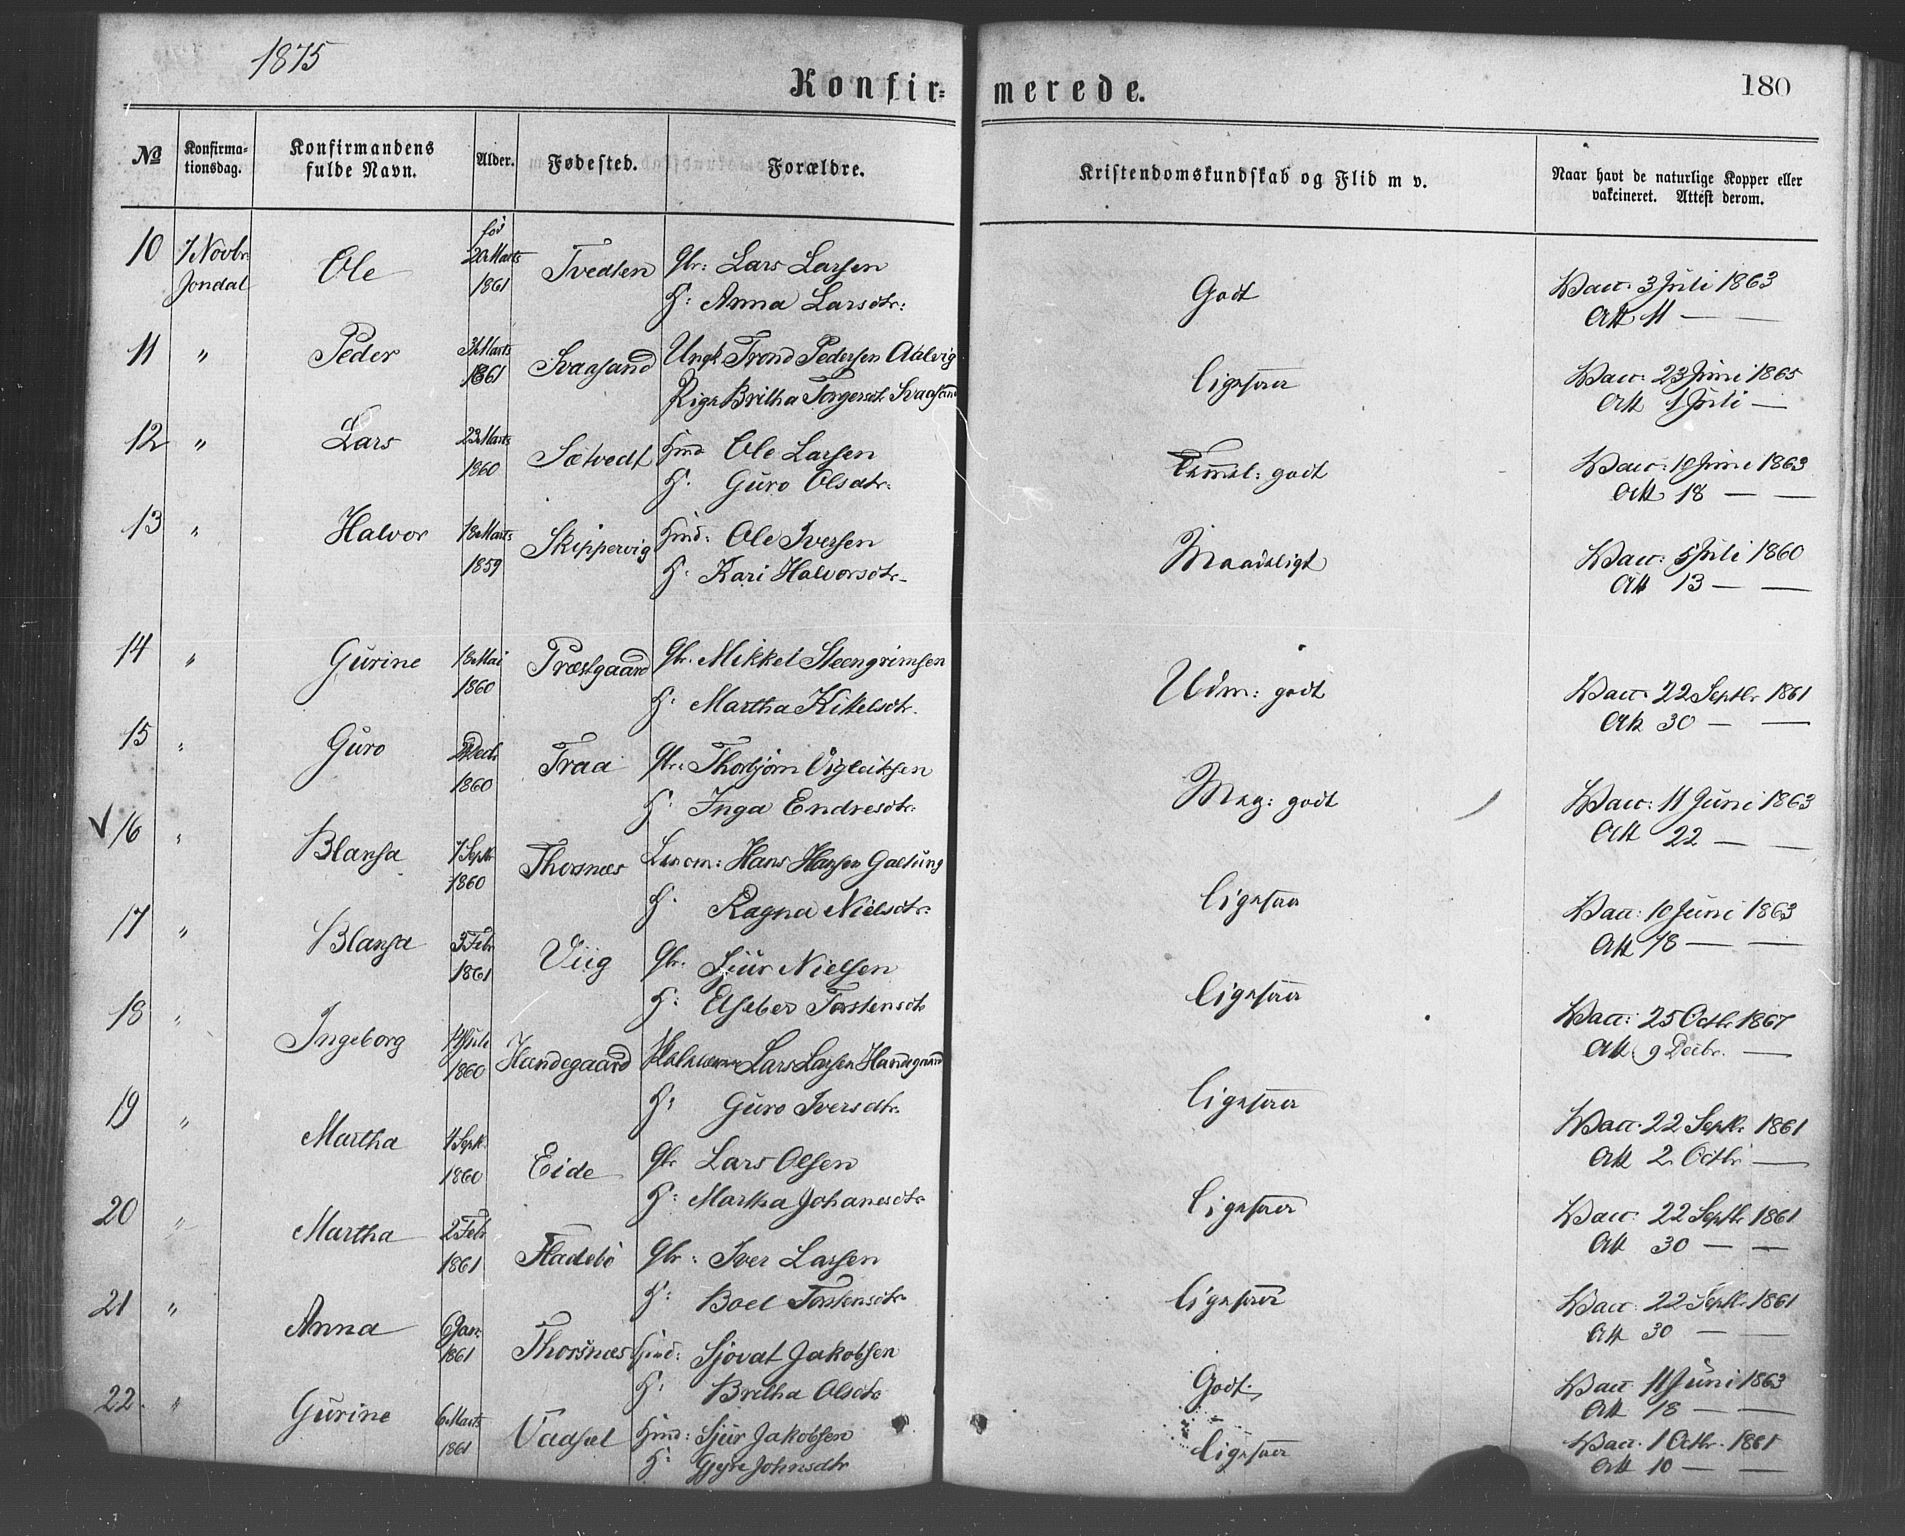 1875
Konfir-
merede.
180
No
Konfirma-
tionsdag.
Konfirmandens
fulde Navn.
Alder.
Fødested.
Forældre.
Kristendomskundskab og Flid m v.
Naar havt de naturlige Kopper eller
vakcineret. Attest derom.
10 7 Novbr. Jondal Ole fød 20 Marts 1861 Tvedten Gbr: Lars Larsen
H: Anna Larsdtr:
Godt
Vacc: 3 Juli 1863
Att 11 — —
11 " Peder 1861 Svaasand Ungk Trond Pedersen Aalvig
Pige Britha Torgersdt Svaasand
Ligesaa
Vacc: 23 Juni 1865
Att 1 Juli —
12 " Lars 23 Marts 1860 Sætvedt Hmd Ole Larsen
H: Guro Olsdtr:
godt
Vacc: 10 Juni 1863
Att 18 — —
13 " Halvor 18 Marts 1859 Skippervig Hmd: Ole Iversen
H: Kari Halvorsdtr
Maadeligt
Vacc: 5 Juli 1860
Att 13 — —
14 " Gurine 18 Mai 1860 Præstgaard Gbr. Mikkel Steengrimsen
H: Martha Kikelsdtr.
Udm: godt
Vacc 22 Septbr 1861
Att 30 — —
15 " Guro Decb 1860 Traa Gbr: Thorbjørn Vigleiksen
H: Inga Endresdtr:
Meg: godt
Vacc: 11 Juni 1863
Att 22 — —
16 " Blansa 7 Septr 1860 Thorsnæs Hans Hansen Gaesung
H: Ragna Nielsdtr:
Ligesaa
Vacc: 10 Juni 1863
Att 18 — —
17 " Blansa 3 Febr 1861 Viig Gbr. Sjur Nielsen
H: Elseber Torstensdt
Ligesaa
Vacc: 25 Octbr 1867
Att 9 Decbr. —
18 " Ingeborg Juli 1860 Handegaard Lars Larsen Handegaard
H: Guro Iversdtr.
Ligesaa
Vacc. 22 Septbr 1861
Att 2 Octbr —
19 " Martha Septr 1860 Eide Gbr Lars Olsen
H: Martha Johanesdtr
Ligesaa
Vacc: 22 Septbr 1861
Att 30 — —
20 " Martha 2 Febr 1861 Fladebö Gbr: Iver Larsen
H: Boel Torstensdtr
Ligesaa
Vacc: 22 Septbr 1861
Att 30 — —
21 " Anna 6 Jan: 1861 Thorsnæs Hmd: Sjovat Jakobsen
H: Britha Olsdtr
Godt
Vacc 11 Juni 1863
Att 18 — —
22 " Gurine 6 Marts 1861 Vaasel Hmd: Sjur Jakobsen
H: Johnsdtr
Ligesaa
Vacc. 1 Octbr. 1861
Att 10 — —